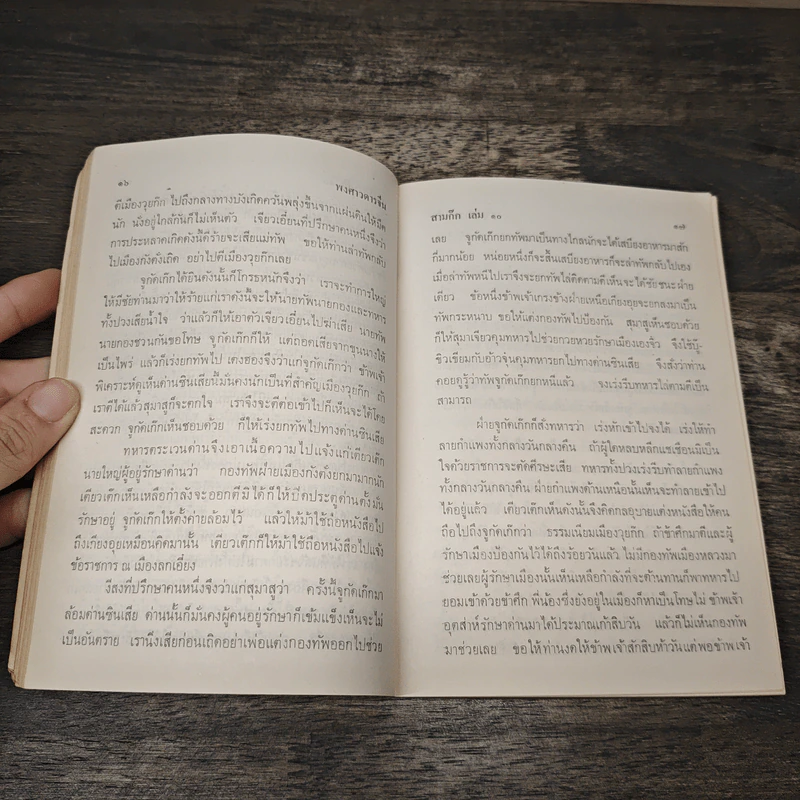 ๑๖ พงศาวดารจีน
ตีเมืองวุยก๊ก ไปถึงกลางทางบังเกิดควันพลุ่งขึ้นจากแผ่นดินให้มืด
นัก นั่งอยู่ใกล้กันก็ไม่เห็นตัว เจียวเอี๋ยนที่ปรึกษาคนหนึ่งจึงว่า
การประหลาดเกิดดังนี้ดีร้ายจะเสียแม่ทัพ ขอให้ท่านล่าทัพกลับ
ไปเมืองกังตั๋งเถิด อย่าไปตีเมืองวุยก๊กเลย
จูกัดเก๊กได้ยินดังนั้นก็โกรธหนักจึงว่า เราจะทำการใหญ่
ให้มีชัยท่านมาว่าให้ร้ายแก่เราดังนี้จะให้นายทัพนายกองและทหาร
ทั้งปวงเสียน้ำใจ ว่าแล้วก็ให้เอาตัวเจียวเอี๋ยนไปฆ่าเสีย นายทัพ
นายกองชวนกันขอโทษ จูกัดเก๊กก็ให้ แต่ถอดเสียจากขุนนางให้
เป็นไพร่ แล้วก็เร่งยกทัพไป เตงฮองจึงว่าแก่จูกัดเก๊กว่า ข้าพเจ้า
พิเคราะห์ดูเห็นด่านซินเสียนี้มั่นคงนักเป็นที่สำคัญเมืองวุยก๊ก ถ้า
เราตีได้แล้วสุมาสูก็จะตกใจ เราจึงจะตีต่อเข้าไปก็เห็นจะได้โดย
สะดวก จูกัดเก๊กเห็นชอบด้วย ก็ให้เร่งยกทัพไปทางด่านซินเสีย
ทหารตระเวนด่านจึงเอาเนื้อความไปแจ้งแก่เตียวเต๊ก
นายใหญ่ผู้อยู่รักษาด่านว่า กองทัพฝ่ายเมืองกังตั๋งยกมามากนัก
เตียวเต๊กเห็นเหลือกำลังจะออกตีมิได้ก็ให้ปิดประตูด่านตั้งมั่น
รักษาอยู่ จูกัดเก๊กให้ตั้งค่ายล้อมไว้ แล้วให้ม้าใช้ถือหนังสือไป
ถึงเกียงอุยเหมือนคิดมานั้น เตียวเต๊กก็ให้ม้าใช้ถือหนังสือไปแจ้ง
ข้อราชการ ณ เมืองลกเอี๋ยง
งีสงที่ปรึกษาคนหนึ่งจึงว่าแก่สุมาสูว่า ครั้งนี้จูกัดเก๊กมา
ล้อมด่านซินเสีย ด่านนั้นก็มั่นคงผู้คนอยู่รักษาก็เข้มแข็งเห็นจะไม่
เป็นอันตราย เรานิ่งเสียก่อนเถิดอย่าเพ่อแต่งกองทัพออกไปช่วย
สามก๊ก เล่ม ๑๐ ๑๗
เลย จูกัดเก๊กยกทัพมาเป็นทางไกลนักจะได้เสบียงอาหารมาสัก
กี่มากน้อย หน่อยหนึ่งก็จะสิ้นเสบียงอาหารก็จะล่าทัพกลับไปเอง
เมื่อล่าทัพหนีไปเราจึงจะยกทัพไล่ติดตามตีเห็นจะได้ชัยชนะฝ่าย
เดียว ข้อหนึ่งข้าพเจ้าเกรงข้างฝ่ายเหนือเกียงอุยจะยกลงมาเป็น
ทัพกระหนาบ ขอให้แต่งกองทัพไปป้องกัน สุมาสูเห็นชอบด้วย
ก็ให้สุมาเจียวคุมทหารไปช่วยกวยหวยรักษาเมืองเองจิ๋ว จึงใช้บู๊-
ขิวเขียมกับอ้าวจุ๋นคุมทหารยกไปทางด่านซินเสีย จึงสั่งว่าท่าน
คอยดูรู้ว่าทัพจูกัดเก๊กยกหนีแล้ว จงเร่งรีบทหารไล่ตามตีเป็น
สามารถ
ฝ่ายจูกัดเก๊กก็สั่งทหารว่า เร่งหักเข้าไปจงได้ เร่งให้ทำ
ลายกำแพงทั้งกลางวันกลางคืน ถ้าผู้ใดหลบหลีกแชเชือนมิเป็น
ใจด้วยราชการจะตัดศีรษะเสีย ทหารทั้งปวงเร่งรีบทำลายกำแพง
ทั้งกลางวันกลางคืน ฝ่ายกำแพงด้านเหนือนั้นเห็นจะทำลายเข้าไป
ได้อยู่แล้ว เตียวเต๊กเห็นดังนั้นจึงคิดกลอุบายแต่งหนังสือให้คน
ถือไปถึงจูกัดเก๊กว่า ธรรมเนียมเมืองวุยก๊ก ถ้าข้าศึกมาตีและผู้
รักษาเมืองป้องกันไว้ให้ถึงร้อยวันแล้ว ไม่มีกองทัพเมืองหลวงมา
ช่วยเลยผู้รักษาเมืองนั้นเห็นเหลือกำลังที่จะต้านทานก็พาทหารไป
ยอมเข้าด้วยข้าศึก พี่น้องซึ่งยังอยู่ในเมืองก็หาเป็นโทษไม่ ข้าพเจ้า
อุตส่าห์รักษาด่านมาได้ประมาณเก้าสิบวัน แล้วก็ไม่เห็นกองทัพ
มาช่วยเลย ขอให้ท่านงดให้ข้าพเจ้าสักสิบห้าวันแต่พอข้าพเจ้า